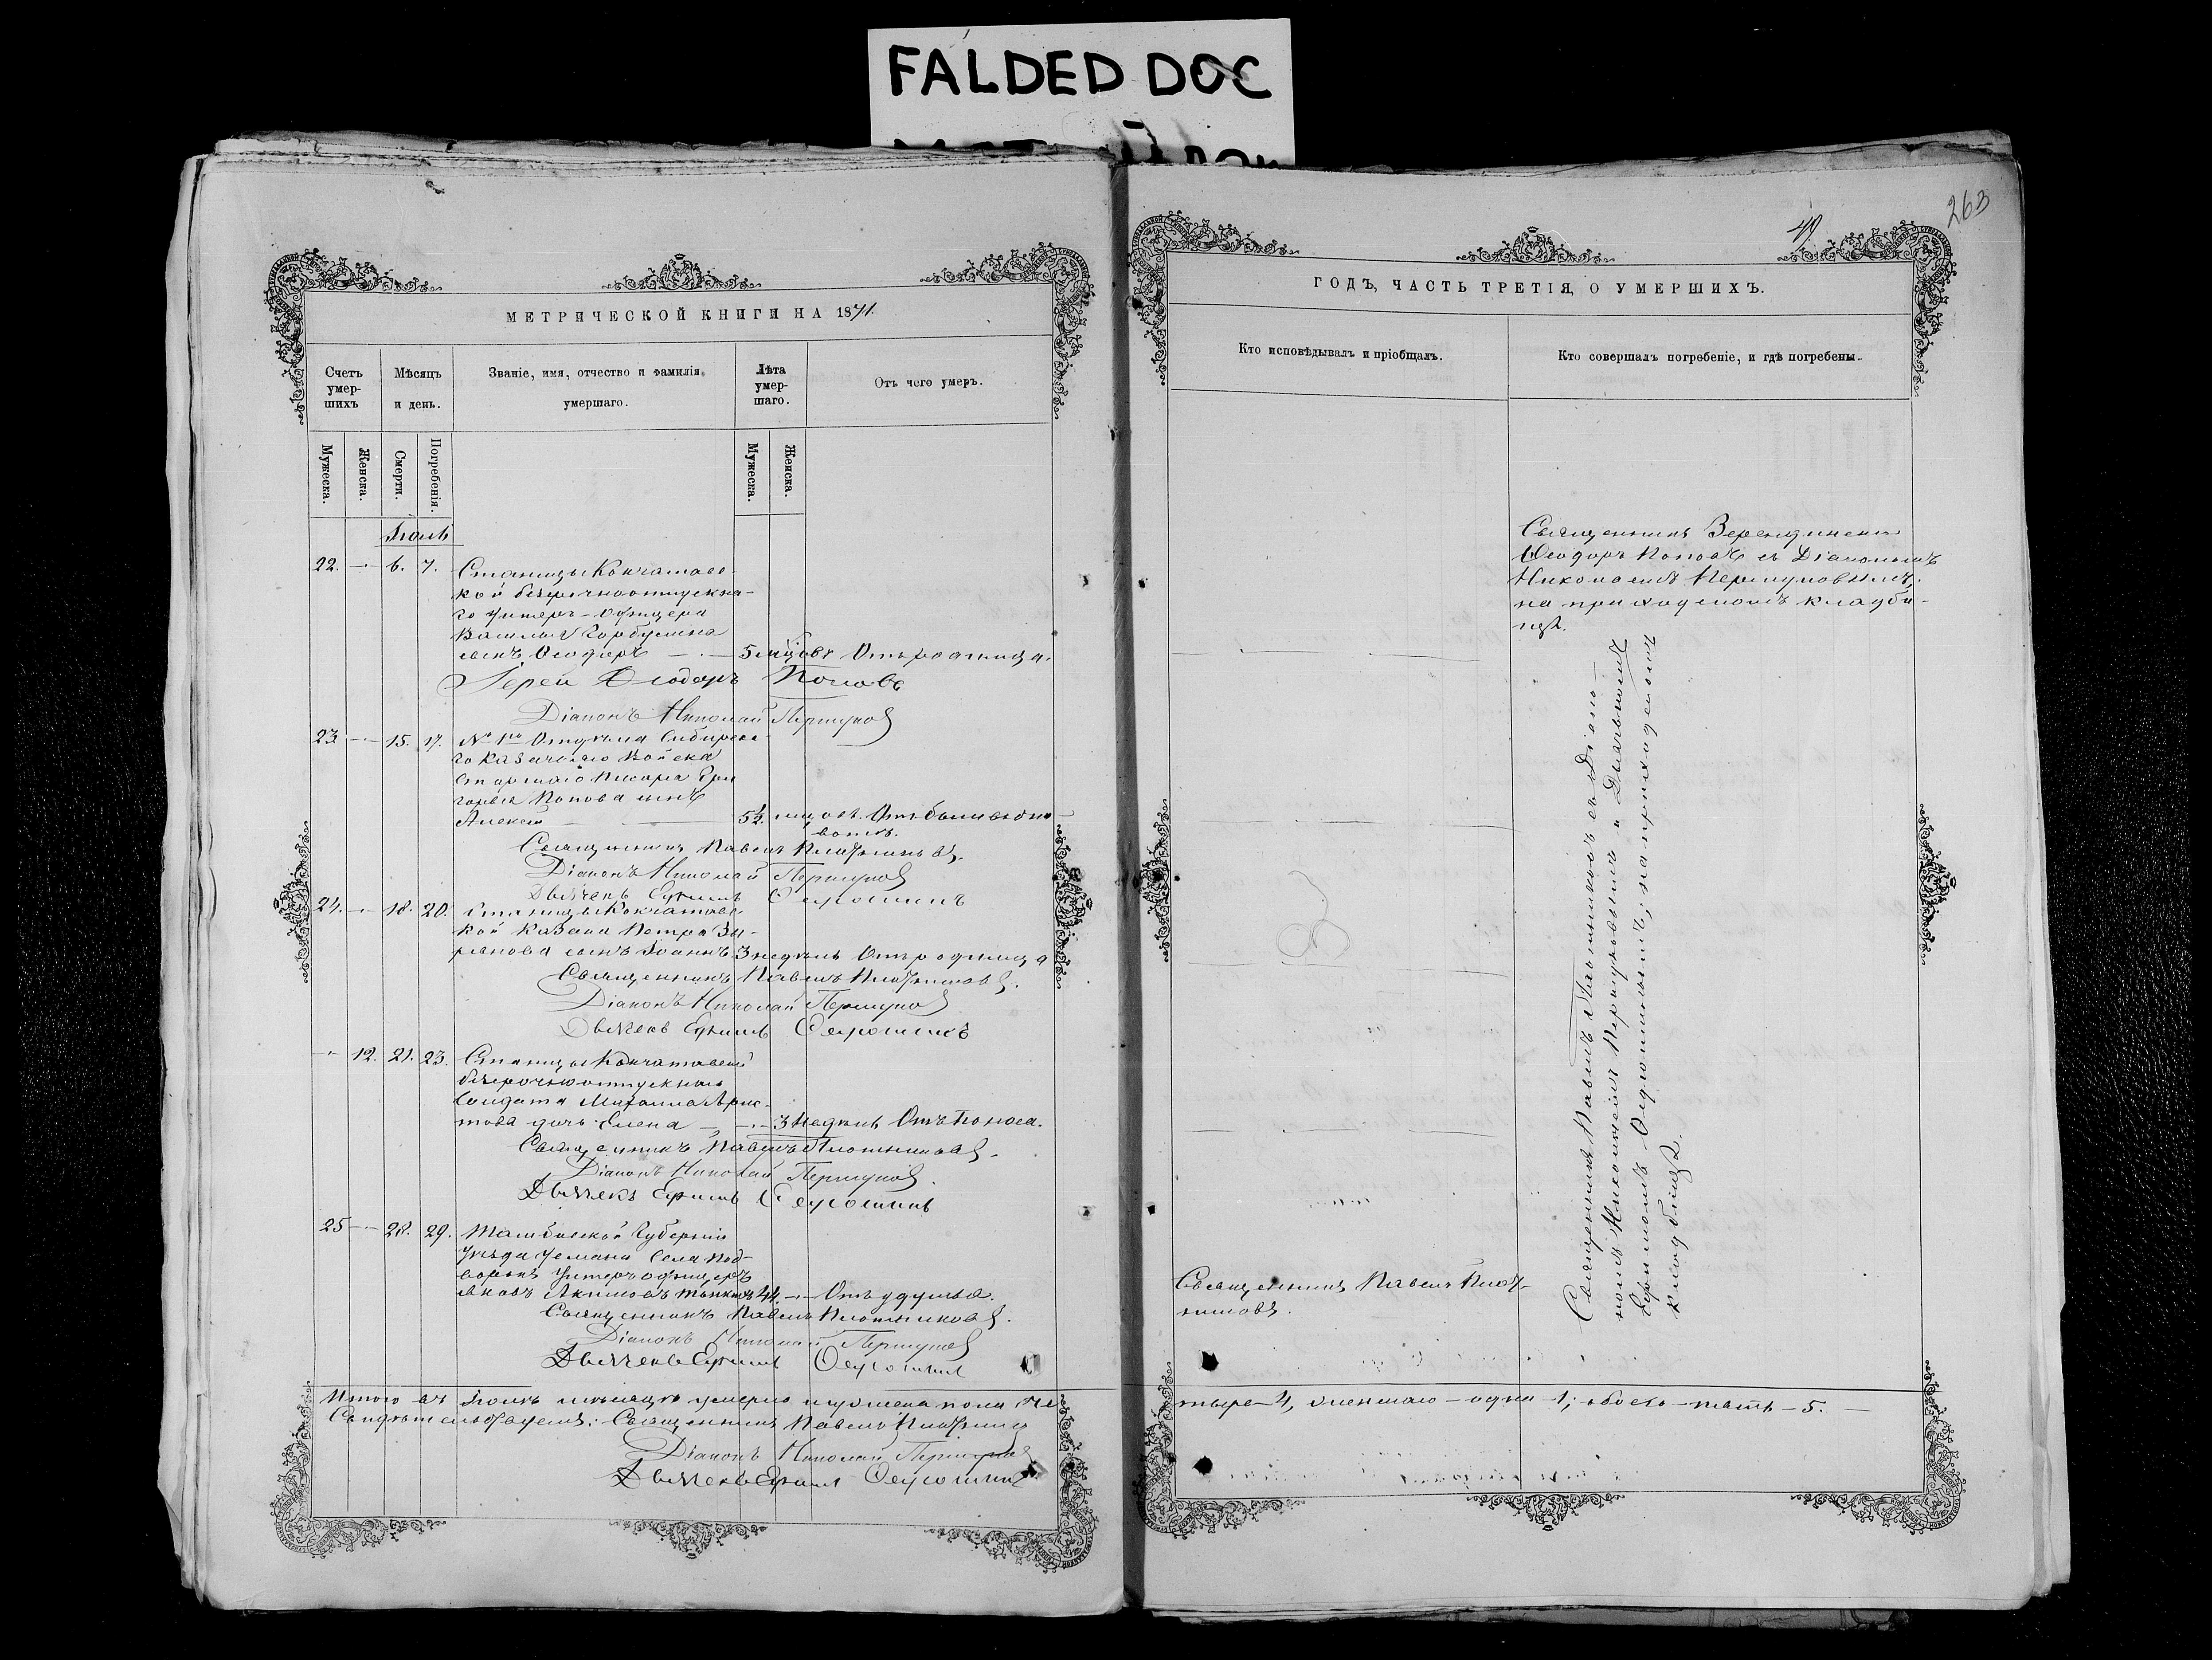 FALDED DOC
263
49
МЕТРИЧЕСКОЙ КНИГИ НА 1871.
Счетъ умер-шихъ
Мѣсяцъ и день.
Званіе, имя, отчество и фамилія умершаго.
Лѣта умер-шаго.
Отъ чего умеръ.
Мужеска.
Женска.
Смерти.
Погребенія.
Мужеска.
Женска.
Іюль
22. — 6. 7. Станицы Кокчетавс-
кой безсрочноотпускна-
го Унтеръ-Офицера
Василья Горбунова
сынъ Ѳеодоръ — 5 мѣсцовъ Отъ родимца.
Іерей Ѳеодоръ Поповъ
Діаконъ Николай Першуковъ
23. — 15. 17. № 1го Отдѣла Сибирска-
го Казачьяго Войска
Старшаго Писаря Гри
горья Попова сынъ
Алексѣй — 5½. мцовъ. Отъ боли въ жи-
вотѣ.
Священникъ Павелъ Плотниковъ.
Діаконъ Николай Першуковъ
Дьячекъ Ефимъ
24. — 18. 20. Станицы Кокчетавс-
кой Казака Петра Зы-
рянова сынъ Іоаннъ. 3 недѣль Отъ родимца
Священникъ Павелъ Плотниковъ.
Діаконъ Николай Першуковъ
Дьячекъ Ефимъ
— 12. 21. 23. Станицы Кокчетавской
безсрочноотпускнаго
Солдата Михаила Арис-
това дочь Елена — 3 недѣль Отъ поноса.
Священникъ Павелъ Плотниковъ.
Діаконъ Николай Першуковъ.
Дьячекъ Ефимъ
25 — 28. 29. Тамбовской Губерніи
Уѣзда Усмани Села Под-
Унтеръ офицеръ
Яковъ Акимовъ 44. — Отъ удушья.
Священникъ Павелъ Плотниковъ.
Діаконъ Николай Першуковъ
Дьячекъ Ефимъ
Итого въ Іюлѣ мѣсяцѣ умерло мужеска пола че
Свидѣтельствуемъ: Священникъ Павелъ
Діаконъ Николай Першуковъ
Дьячекъ Ефимъ
ГОДЪ, ЧАСТЬ ТРЕТІЯ, О УМЕРШИХЪ.
Кто исповѣдывалъ и пріобщалъ.
Кто совершалъ погребеніе, и гдѣ погребены.
Священникъ
Ѳеодоръ Поповъ съ Діакономъ
Николаемъ Першуковымъ,
на приходскомъ кладби-
щѣ.
Священникъ Павелъ Плотниковъ съ Діако-
номъ Николаемъ Першуковымъ и Дьячкомъ
на приходскомъ
кладбищѣ.
Священникъ Павелъ Плот-
никовъ.
тыре — 4, женскаго — одна — 1; обоего — пять — 5. —